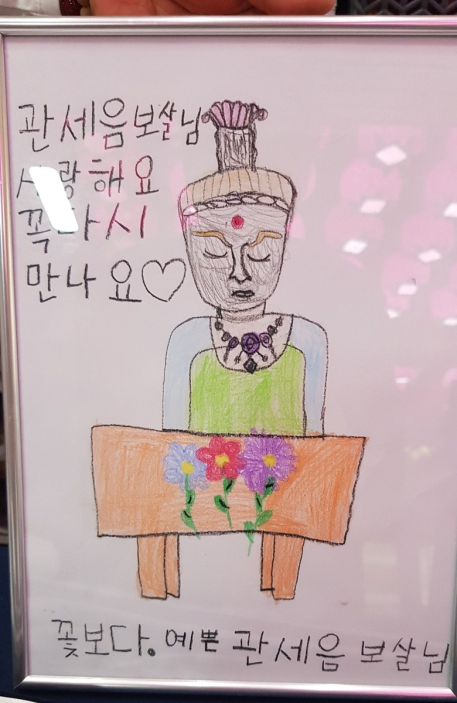 관세음보살님
사랑해요
꼭다시
만나요♡
꽃보다. 예쁜 관세음 보살님